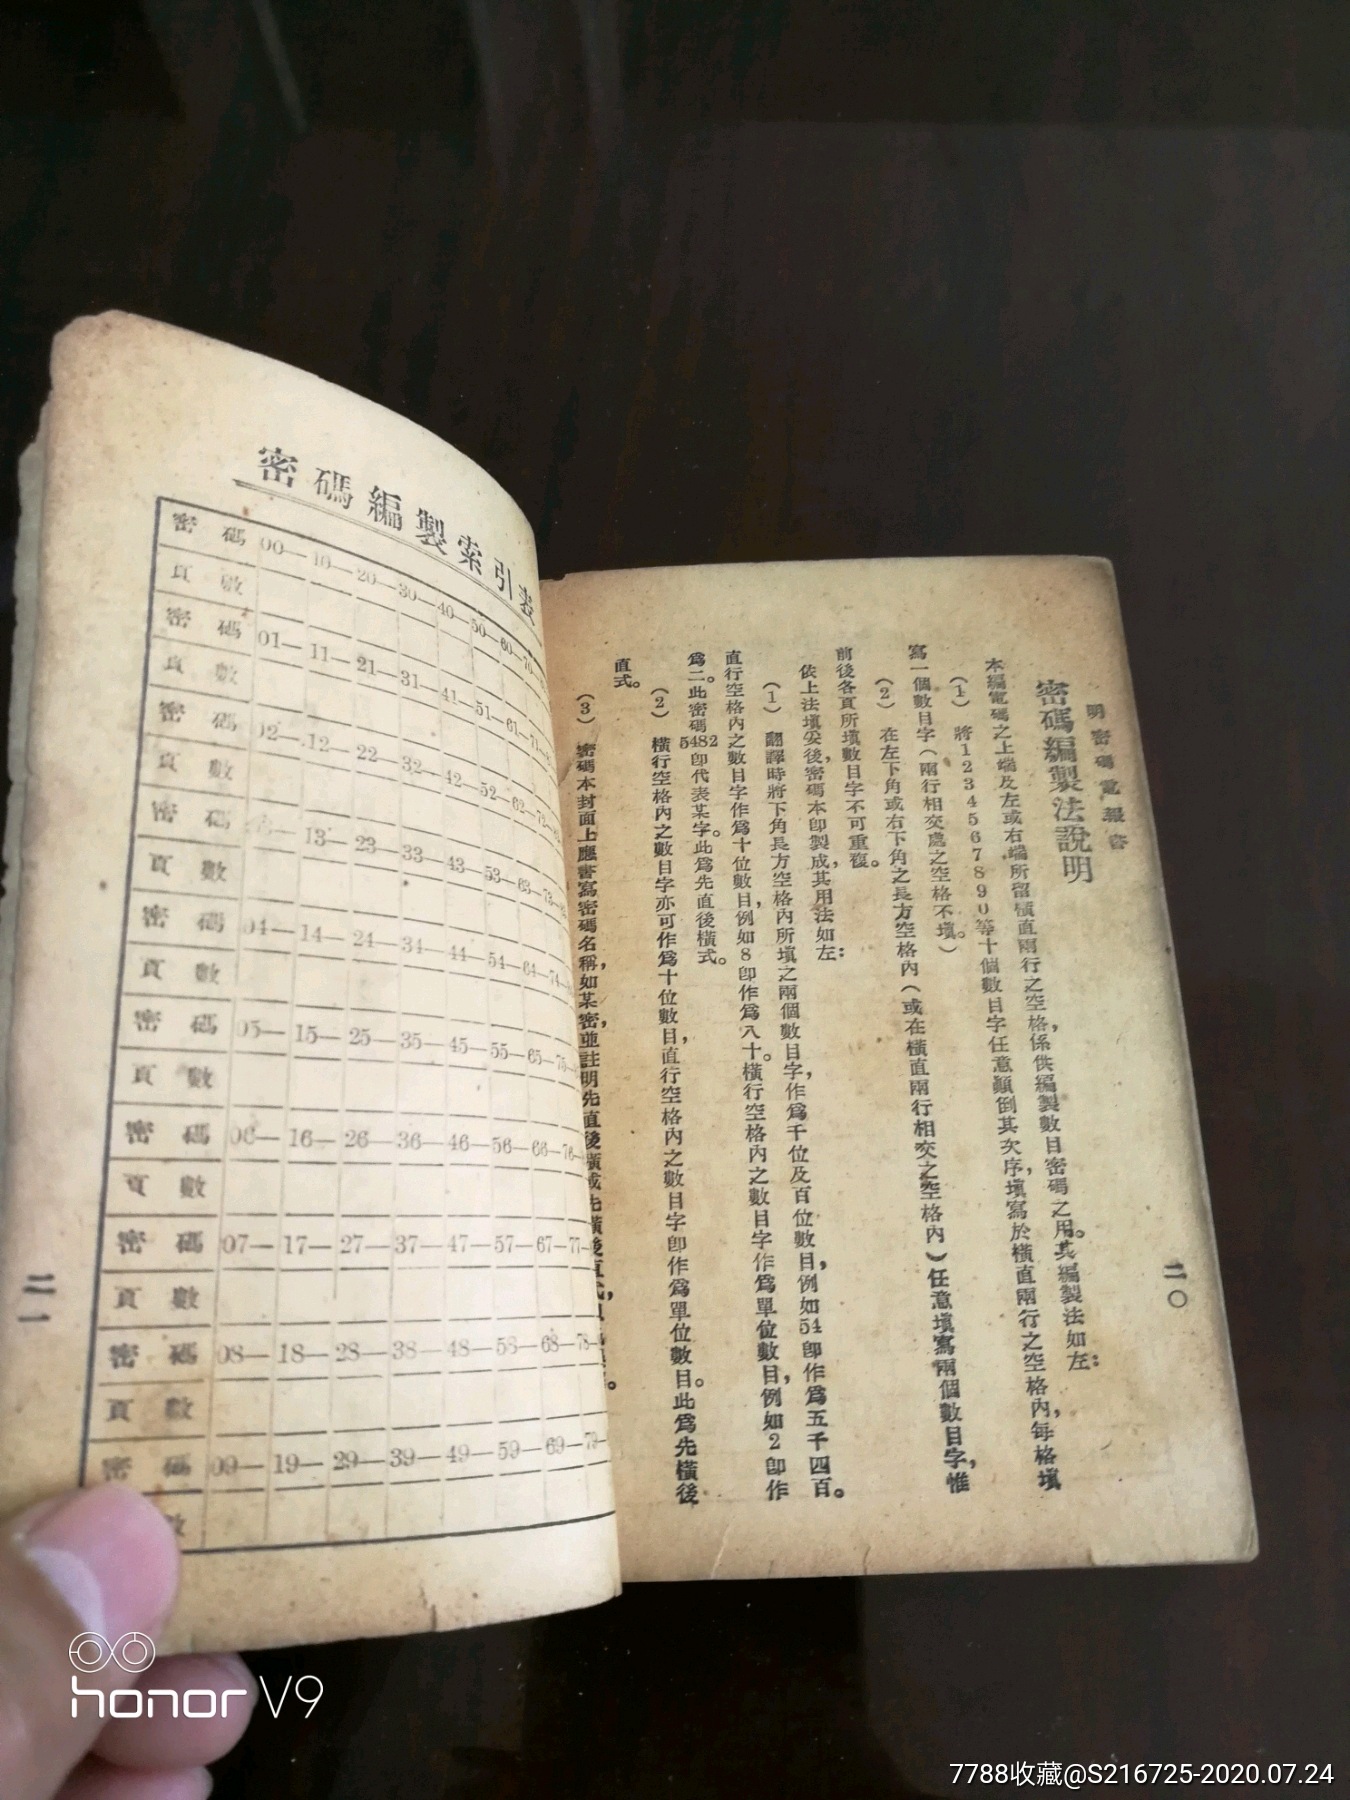 明密碼電報書
二〇
密碼編製法說明
本編電碼之上端及左或右端所留橫直兩行之空格，係供編製數目密碼之用。其編製法如左：
（1） 將1234567890等十個數目字任意顛倒其次序，填寫於橫直兩行之空格內，每格填
寫一個數目字（兩行相交處之空格不填。）
（2） 在左下角或右下角之長方空格內（或在橫直兩行相交之空格內）任意填寫兩個數目字，惟
前後各頁所填數目字不可重複。
依上法填妥後，密碼本即製成，其用法如左：
（1） 翻譯時將下角長方空格內所填之兩個數目字，作為千位及百位數目，例如54即作為五千四百。
直行空格內之數目字作為十位數目，例如8即作為八十。橫行空格內之數目字作為單位數目，例如2即作
為二。此密碼5482即代表某字。此為先直後橫式。
（2） 橫行空格內之數目字亦可作為十位數目，直行空格內之數目字即作為單位數目。此為先橫後
直式。
（3） 密碼本封面上應書寫密碼名稱，如某密，並註明先直後橫或先橫後直式，
密碼編製索引表
密碼 00— 10— 20— 30— 40— 50— 60— 70
頁數
密碼 01— 11— 21— 31— 41— 51— 61— 71
頁數
密碼 02— 12— 22— 32— 42— 52— 62— 72
頁數
密碼 13— 23— 33— 43— 53— 63— 73
頁數
密碼 04— 14— 24— 34— 44— 54— 64— 74
頁數
密碼 05— 15— 25— 35— 45— 55— 65— 75
頁數
密碼 06— 16— 26— 36— 46— 56— 66— 76
頁數
密碼 07— 17— 27— 37— 47— 57— 67— 77
頁數
密碼 08— 18— 28— 38— 48— 58— 68— 78
頁數
密碼 09— 19— 29— 39— 49— 59— 69— 79
數
二一
honor V9
7788收藏@S216725-2020.07.24